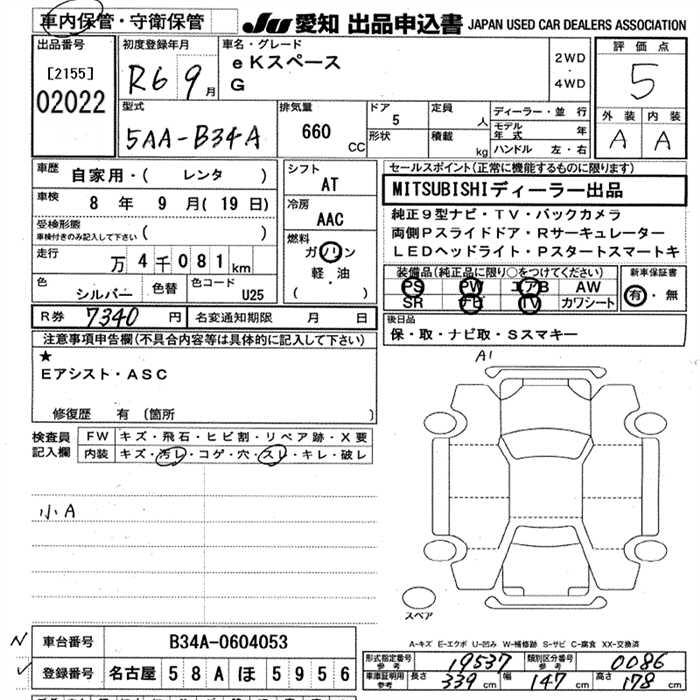 車内保管・守衛保管 JU 愛知 出品申込書 JAPAN USED CAR DEALERS ASSOCIATION
出品番号 [2155] 02022
初度登録年月 R6 9月
車名・グレード eKスペース G
2WD・4WD
評価点 5
外装 A 内装 A
型式 5AA-B34A
排気量 660 CC
ドア 5 形状
定員 人 積載 kg
ディーラー・並行 モデル年式 年 ハンドル 左・右
車歴 自家用・( レンタ )
車検 8年 9月(19日)
受検形態 車検付きのみ記入して下さい ( )
走行 万4千081km
色 シルバー 色替 色コード U25
シフト AT
冷房 AAC
燃料 ガソリン 軽・油 ( )
セールスポイント(正常に機能するものに限ります)
MITSUBISHIディーラー出品
純正9型ナビ・TV・バックカメラ
両側Pスライドドア・Rサーキュレーター
LEDヘッドライト・Pスタートスマートキ
装備品(純正品に限り○をつけてください) 新車保証書
PS PW エアB AW 有・無
SR ナビ TV カワシート
R券 7340円 名変通知期限 月 日
後日品
保・取・ナビ取・Sスマキー
注意事項申告欄(不具合内容等は具体的に記入して下さい)
★
Eアシスト・ASC
修復歴 有 (箇所 )
検査員記入欄 FW キズ・飛石・ヒビ割・リペア跡・X要
内装 キズ・汚レ・コゲ・穴・スレ・キレ・破レ
A1
小A
スペア
N 車台番号 B34A-0604053
✓ 登録番号 名古屋 58Aほ5956
A-キズ E-エクボ U-凹み W-補修跡 S-サビ C-腐食 XX-交換済
形式指定番号 参考 19537 類別区分番号 参考 0086
車庫証明用参考 長さ 339cm 幅 147cm 高さ 178cm